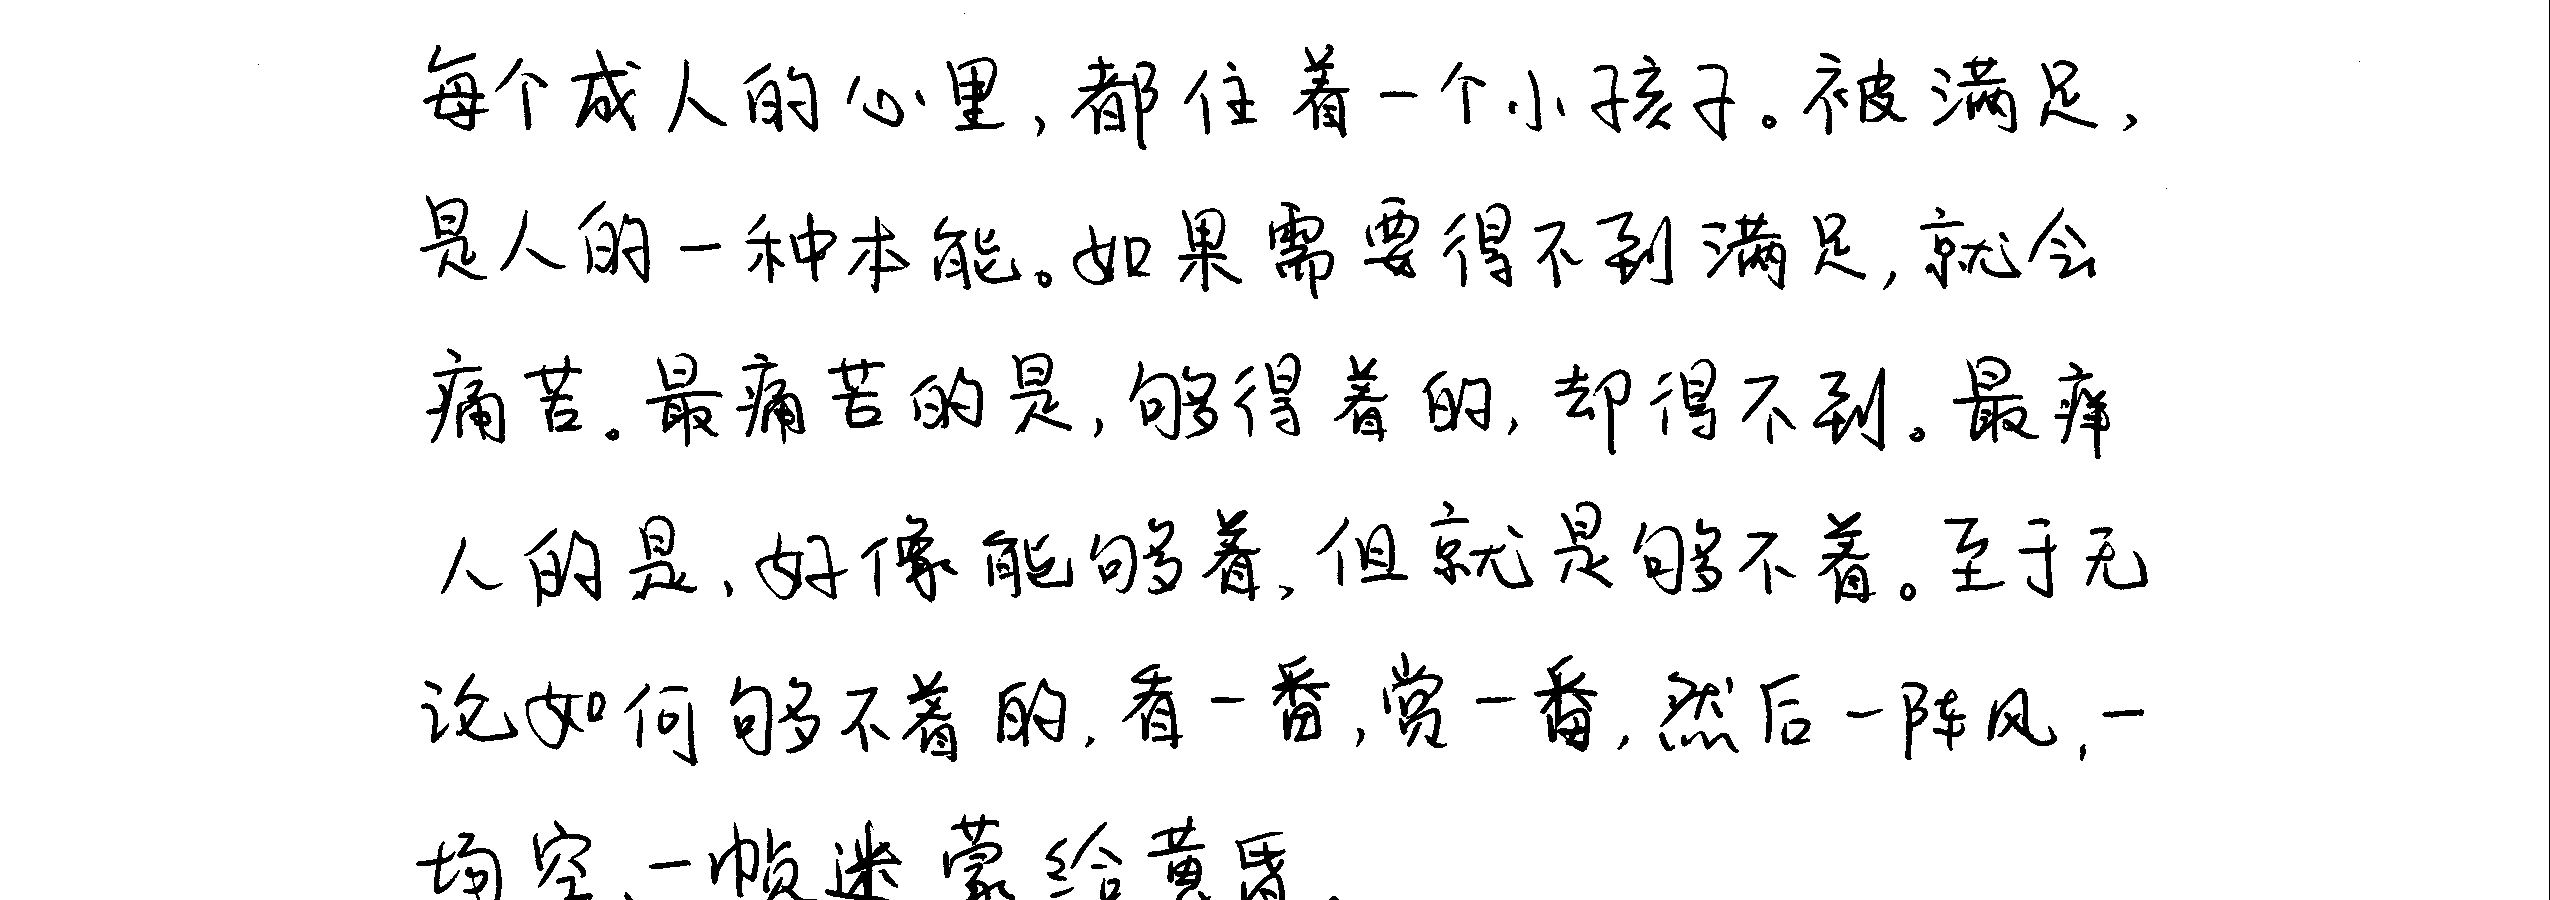 每个成人的心里,都住着一个小孩子。被满足,
是人的一种本能。如果需要得不到满足,就会
痛苦。最痛苦的是,够得着的,却得不到。最痒
人的是,好像能够着,但就是够不着。至于无
论如何够不着的,看一番,赏一番,然后一阵风,一
场空,一帧迷蒙给黄昏。